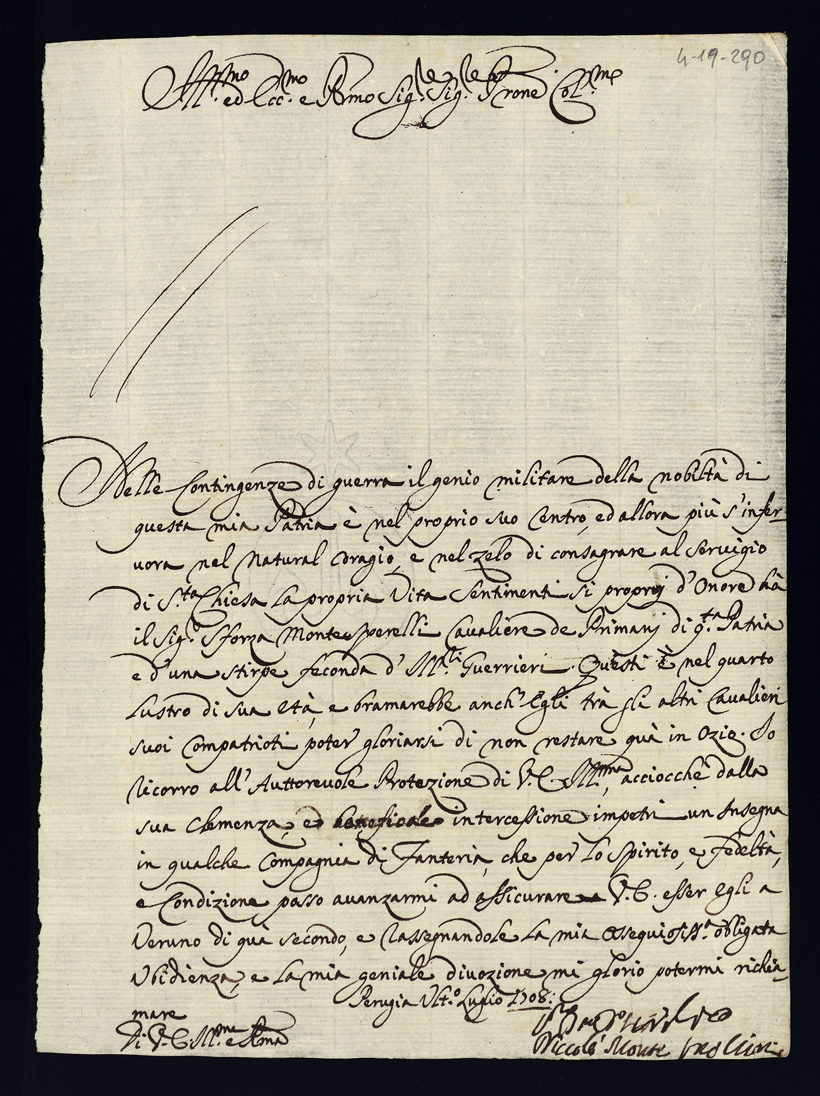 4-19-290
Ill.mo ed Ecc.mo e Rmo Sig.re Sig.re Prone Col.mo
Nelle Contingenze di guerra il genio militare della nobiltà di
questa mia Patria è nel proprio suo Centro, ed allora più s'infer-
vora nel natural coragio, e nel zelo di consagrare al Servigio
di S.ta Chiesa la propria Vita. Sentimenti sì proprij d'Onore hà
il Sig.r Sforza Montesperelli Cavaliere de Primarij di q.ta Patria
e d'una stirpe feconda d'Ill.ri Guerrieri. Questi è nel quarto
Lustro di sua età, e bramarebbe anch'Egli trà gli altri Cavalieri
suoi Compatrioti poter gloriarsi di non restare quà in Ozio. Io
ricorro all'Auttorevole Protezione di V.E. Ill.ma, acciocchè dalla
sua Clemenza, ed intercessione impetri un Insegna
in qualche Compagnia di Fanteria, che per lo Spirito, e Fedeltà,
e Condizione posso avanzarmi ad assicurare V.E. esser Egli a
Veruno di quà secondo, e rassegnandole la mia ossequiosiss.a obligata
Vbidienza, e la mia geniale divozione mi glorio potermi richia-
mare
Perugia Vlt.o Luglio 1708.
Di V.E. Ill.ma e Rma
Niccolò Monte